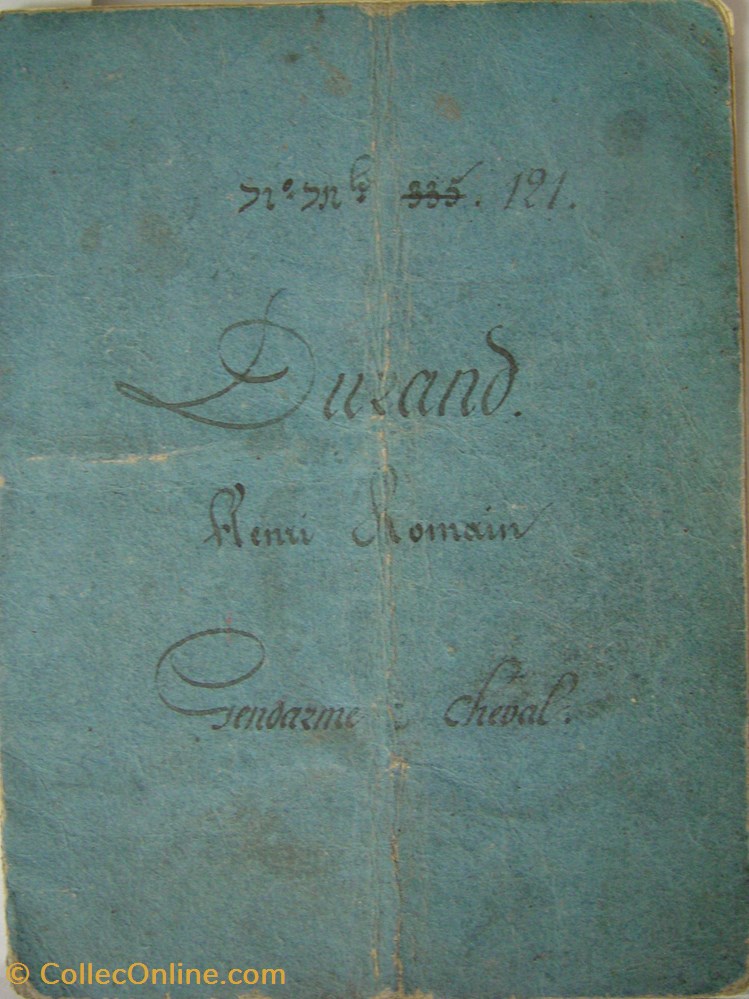 N° Mle 335. 121.
Durand.
Henri Romain
Gendarme à Cheval.
© CollecOnline.com